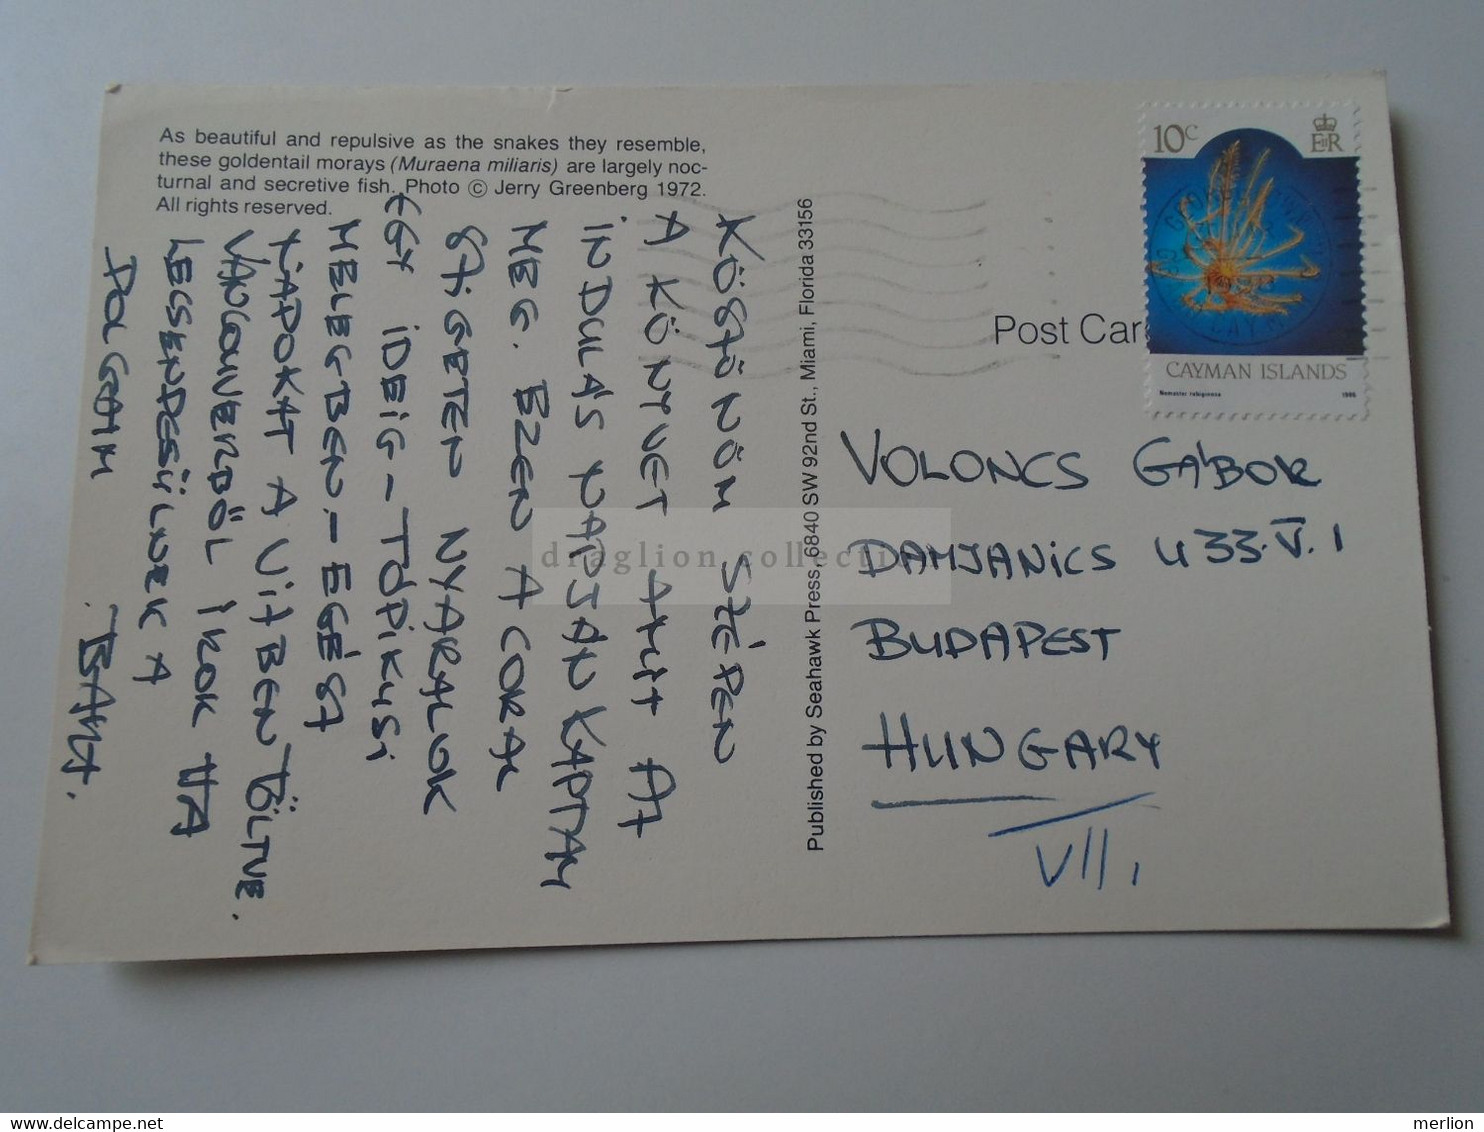 As beautiful and repulsive as the snakes they resemble,
these goldentail morays (Muraena miliaris) are largely noc-
turnal and secretive fish. Photo © Jerry Greenberg 1972.
All rights reserved.
Post Car
10c
EIIR
CAYMAN ISLANDS
Nemaster rubiginosa 1986
Published by Seahawk Press, 6840 SW 92nd St., Miami, Florida 33156
KÖSZÖNÖM SZÉPEN
A KÖNYVET AMIT AZ
INDULÁS NAPJÁN KAPTAM
MEG. EZEN A CORAL
SZIGETEN NYARALOK
EGY IDEIG - TÓPIKUSI
MELEGBEN - EGÉSZ
NAPOKAT A VIZBEN TÖLTVE.
VANCOUVERBÖL IROK HA
LECSENDESÜLNEK A
DOLGAIM.
VOLONCS GÁBOR
DAMJANICS U 33. V. 1
BUDAPEST
HUNGARY
VII,
draglion collection
merlion